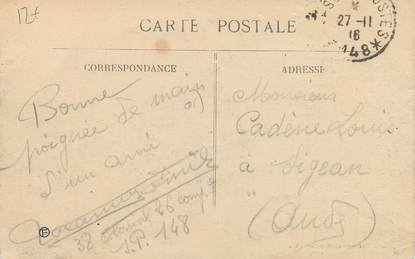 12€
CARTE POSTALE
POSTES
27-11
16
148*
CORRESPONDANCE
Bonne
poignée de mains
d'un ami
38 26
S.P. 148
ADRESSE
Monsieur
Cadène Louis
à Sigean
(Aude)